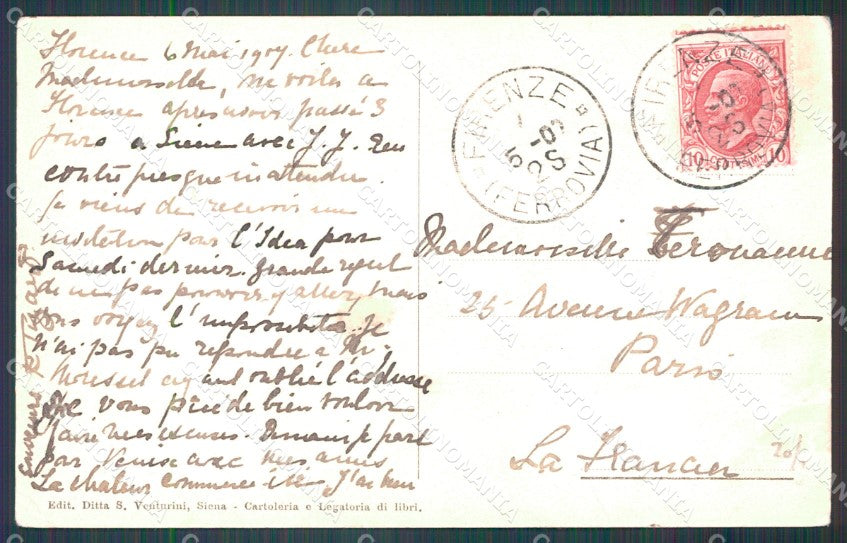 Florence 6 Mai 1907. Chère
Mademoiselle, me voilà à
Florence après avoir passé 3
jours à Sienne avec J. J. Ren
contre presque inattendue.
Je viens de recevoir une
invitation pour l'Idea pour
Samedi dernier. Grande regret
de ne pas pouvoir y aller mais
vous voyez l'impossibilité. Je
n'ai pas pu répondre à Mr.
ayant oublié l'addresse
vous prie de bien vouloir
faire mes excuses. Demain je pars
pour Venise avec mes amis
La chaleur commence ici. J'ai
Edit. Ditta S. Venturini, Siena - Cartoleria e Legatoria di libri.
FIRENZE
(FERROVIA)
POSTE ITALIANE
10 10
FIRENZE
(FERROVIA)
Mademoiselle
25 Avenue Wagram
Paris
La Francia
CARTOLINOMANIA